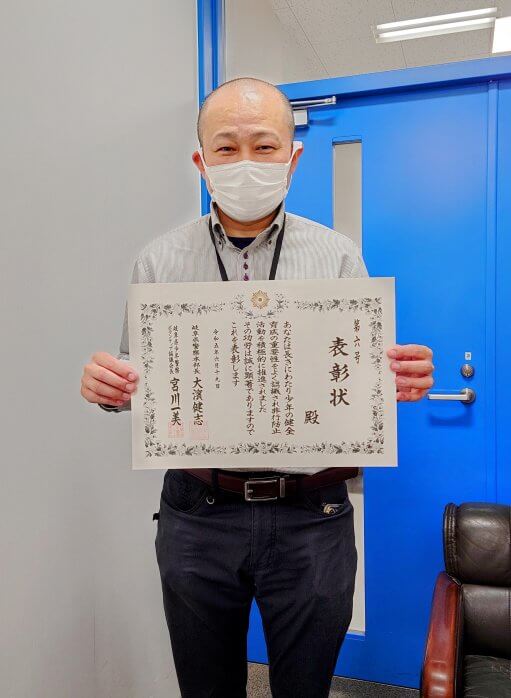 第六号
表彰状
殿
あなたは長きにわたり少年の健全
育成の重要性をよく認識され非行防止
活動を積極的に推進されました
その功労は誠に顕著でありますので
これを表彰します
令和五年六月十九日
岐阜県警察本部長 大濱健志
岐阜県少年警察
ボランティア協議会長 宮川一美